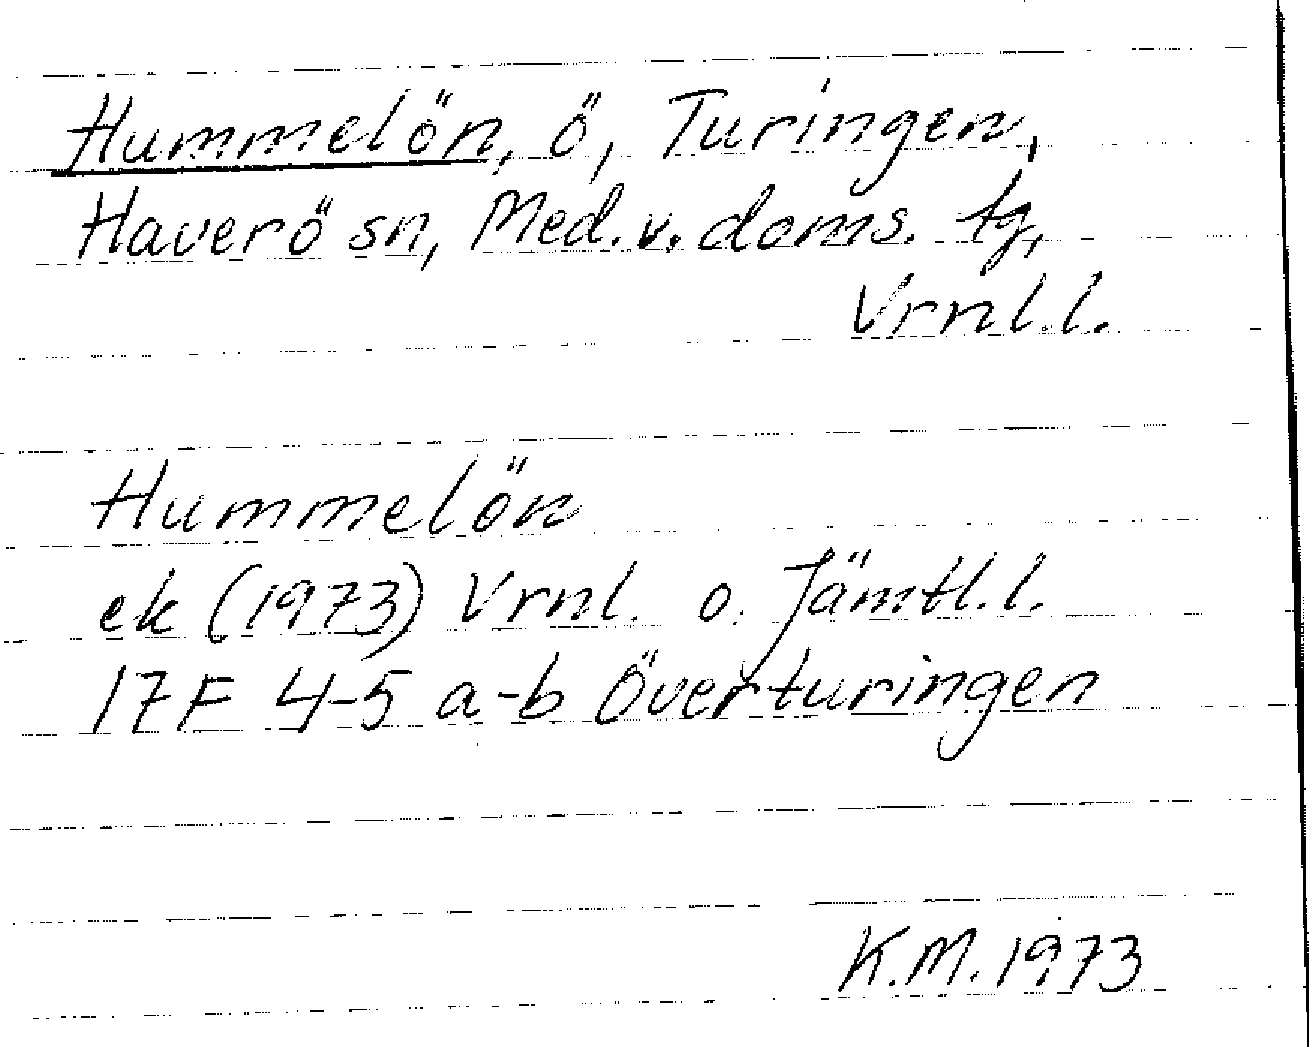 Hummelön, ö, Turingen,
Haverö sn, Med. v. doms. tg,
Vrnl. l.
Hummelön
ek (1973) Vrnl. o. Jämtl. l.
17F 4-5 a-b Överturingen
K.M. 1973